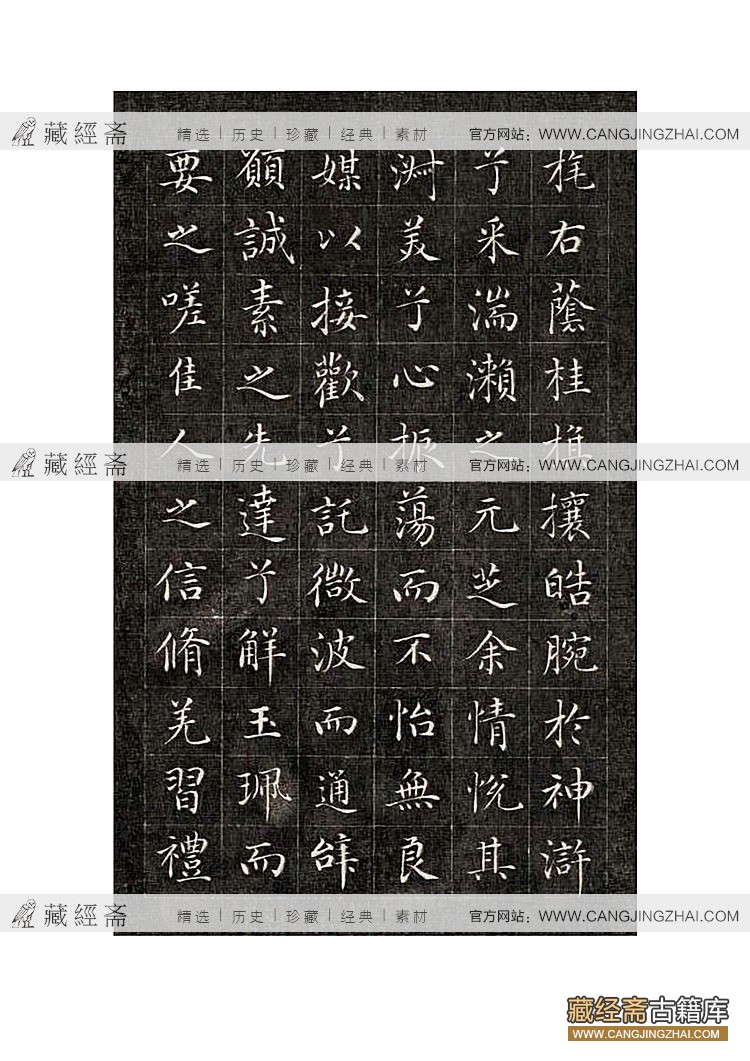 旄右蔭桂旗攘皓腕於神滸
兮采湍瀨之元芝余情悅其
淑美兮心振蕩而不怡無良
媒以接歡兮託微波而通辭
願誠素之先達兮解玉珮而
要之嗟佳人之信脩羌習禮
藏經斋 精选 | 历史 | 珍藏 | 经典 | 素材 官方网站：WWW.CANGJINGZHAI.COM
藏經斋 精选 | 历史 | 珍藏 | 经典 | 素材 官方网站：WWW.CANGJINGZHAI.COM
藏經斋 精选 | 历史 | 珍藏 | 经典 | 素材 官方网站：WWW.CANGJINGZHAI.COM
藏经斋古籍库
WWW.CANGJINGZHAI.COM